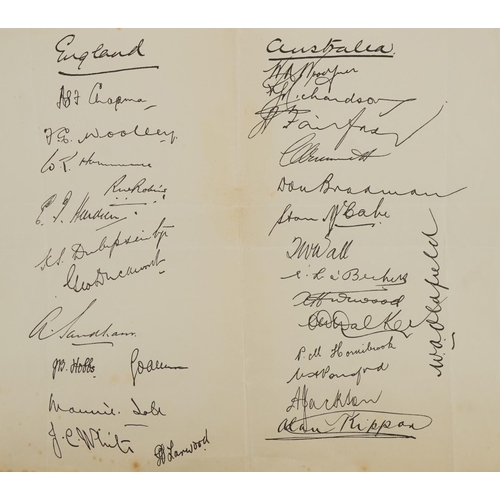 England
APF Chapman
F.E. Woolley
W.R. Hammond
R.W.V. Robins
E.P. Hendren
K.S. Duleepsinhji
Geo Duckworth
A. Sandham
J.B. Hobbs
G.O. Allen
Maurice Tate
J.C. White
H Larwood
Australia
W M Woodfull
V.Y. Richardson
A Fairfax
C.V. Grimmett
Don Bradman
Stan McCabe
T W Wall
E. L. a'Beckett
C W Walker
P. M. Hornibrook
W H Ponsford
A Jackson
Alan Kippax
W.A. Oldfield